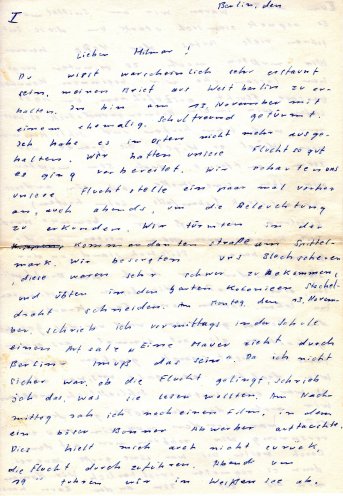 I
Berlin, den
Lieber Hilmar!
Du wirst warscheinlich sehr erstaunt
sein, meinen Brief aus Westberlin zu er-
halten. Ich bin am 13. November mit
einem ehemalig. Schulfreund getürmt.
Ich habe es im Osten nicht mehr ausge-
halten. Wir hatten unsere Flucht so gut
es ging vorbereitet. Wir schauten uns
unsere Fluchtstelle ein paar mal vorher
an, auch abends, um die Beleuchtung
zu erkunden. Wir türmten in der
Kommandantenstraße am Spittel-
mark. Wir besorgten uns Blechscheren
, diese waren sehr schwer zu bekommen,
und übten in den guten Kolonieen Stachel-
draht schneiden. Am Montag, den 13. Novem-
ber, schrieb ich vormittags in der Schule
einen Aufsatz „Eine Mauer zieht durch
Berlin - muß das sein“. Da ich nicht
sicher war, ob die Flucht gelingt, schrieb
ich das, was sie lesen wollten. Am Nach-
mittag sah ich noch einen Film, in dem
ein böser Bonner Abwerber auftauchte.
Dies hielt mich auch nicht zurück,
die Flucht durchzuführen. Abend um
19 fuhren wir in Weißensee ab.